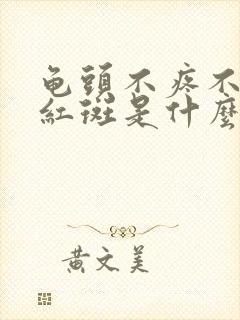 龟頭不疼不
紅斑是什麼
黃文美